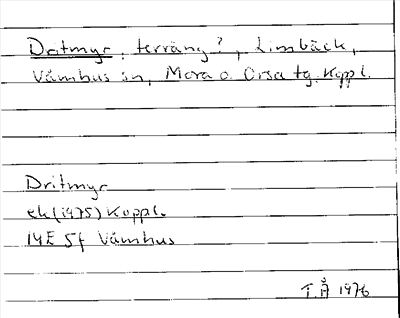 Dritmyr, terräng?, Limbäck,
Våmhus sn, Mora o. Orsa tg. Koppl.
Dritmyr
ek (1975) Koppl.
14E 5f Våmhus
T.Å 1976